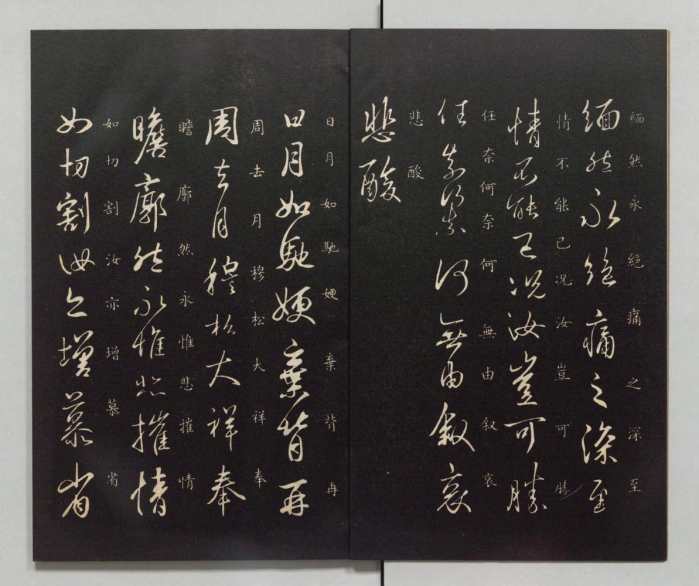 緬然永絕痛之深至
緬然永絕痛之深至
情不能已况汝豈可勝
情不能已况汝豈可勝
任奈何奈何無由叙哀
任奈何奈何無由叙哀
悲酸
悲酸
日月如馳嫂棄背再
日月如馳嫂棄背再
周去月穆松大祥奉
周去月穆松大祥奉
瞻廓然永惟悲摧情
瞻廓然永惟悲摧情
如切割汝亦增慕省
如切割汝亦增慕省